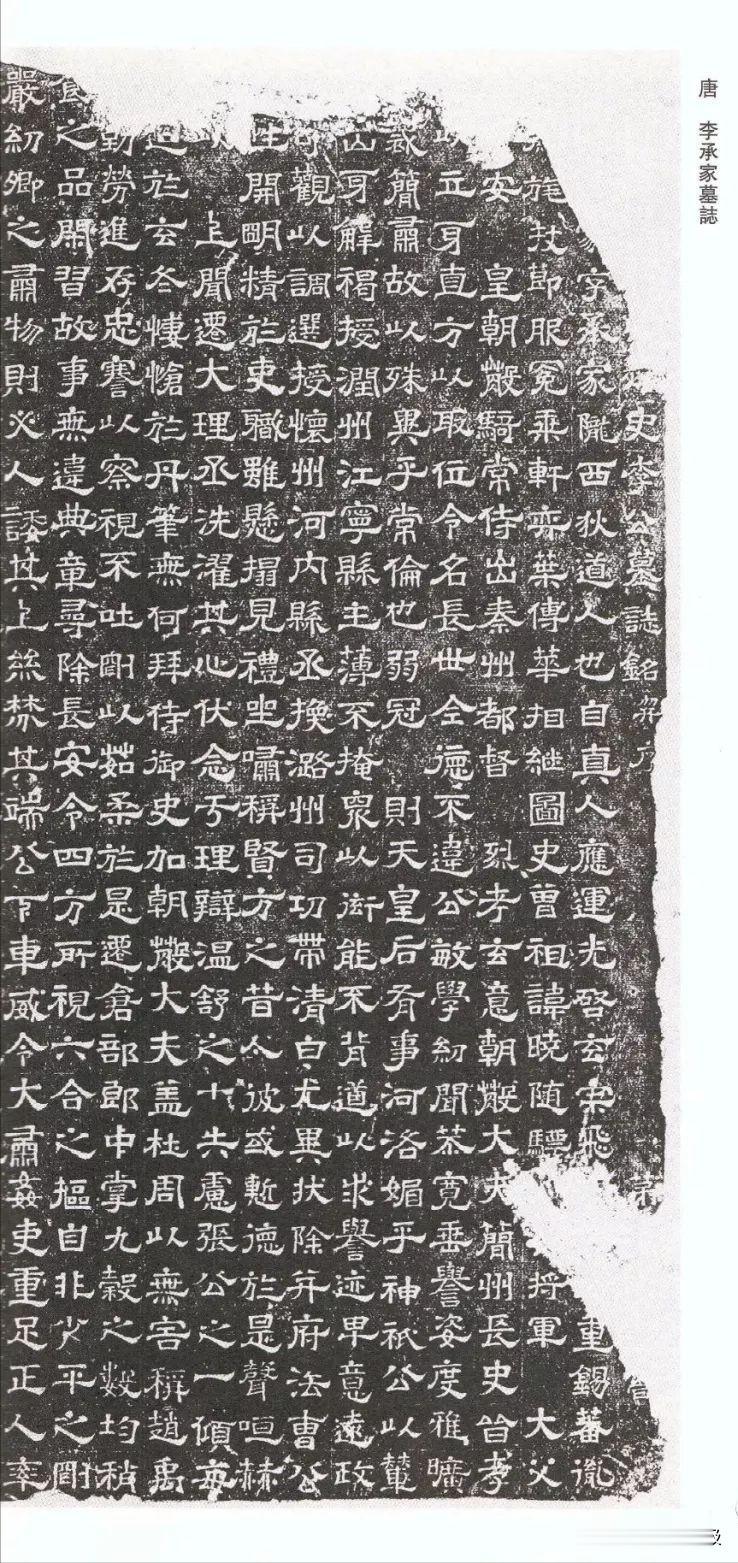 唐 李承家墓誌
史李公墓誌銘并序
家字承家隴西狄道人也自真人應運光啓玄宗飛 重錫蕃胤
旄扙即服冕乘軒弈葉傳華相繼圖史曾祖諱曉隨驃 將軍 大父
安 皇朝散騎常侍出秦州都督 烈考玄意朝散大夫簡州長史皆孝
以立身直方以取位令名長世全德不違公敏學幼聞恭寬垂譽姿度雅曠
簡肅故以殊異乎常倫也弱冠 則天皇后有事河洛媚乎神祇公以輦
出身解褐授潤州江寧縣主薄不掩衆以衒能不背道以求譽迹卑意遠政
可觀以調選授懷州河内縣丞換潞州司功帶清白尤異狀除并府法曹公
性開明精於吏職雖懸榻見禮坐嘯稱賢方之昔今彼或慙德於是聲咺赫
以 上聞遷大理丞洗濯其心伏念于理辯温舒之十失慮張公之一傾
於玄冬悽愴於丹筆無何拜侍御史加朝散大夫盖杜周以無害稱趙禹
勞進存忠謇以察視不吐剛以茹柔於是遷倉部郎中掌九穀之數均稍
食之品閑習故事無違典章尋除長安令四方所視六合之摳自非少平之剛
嚴幼卿之肅物則人諉其上絲棼其端公下車威令大肅姦吏重足正人率